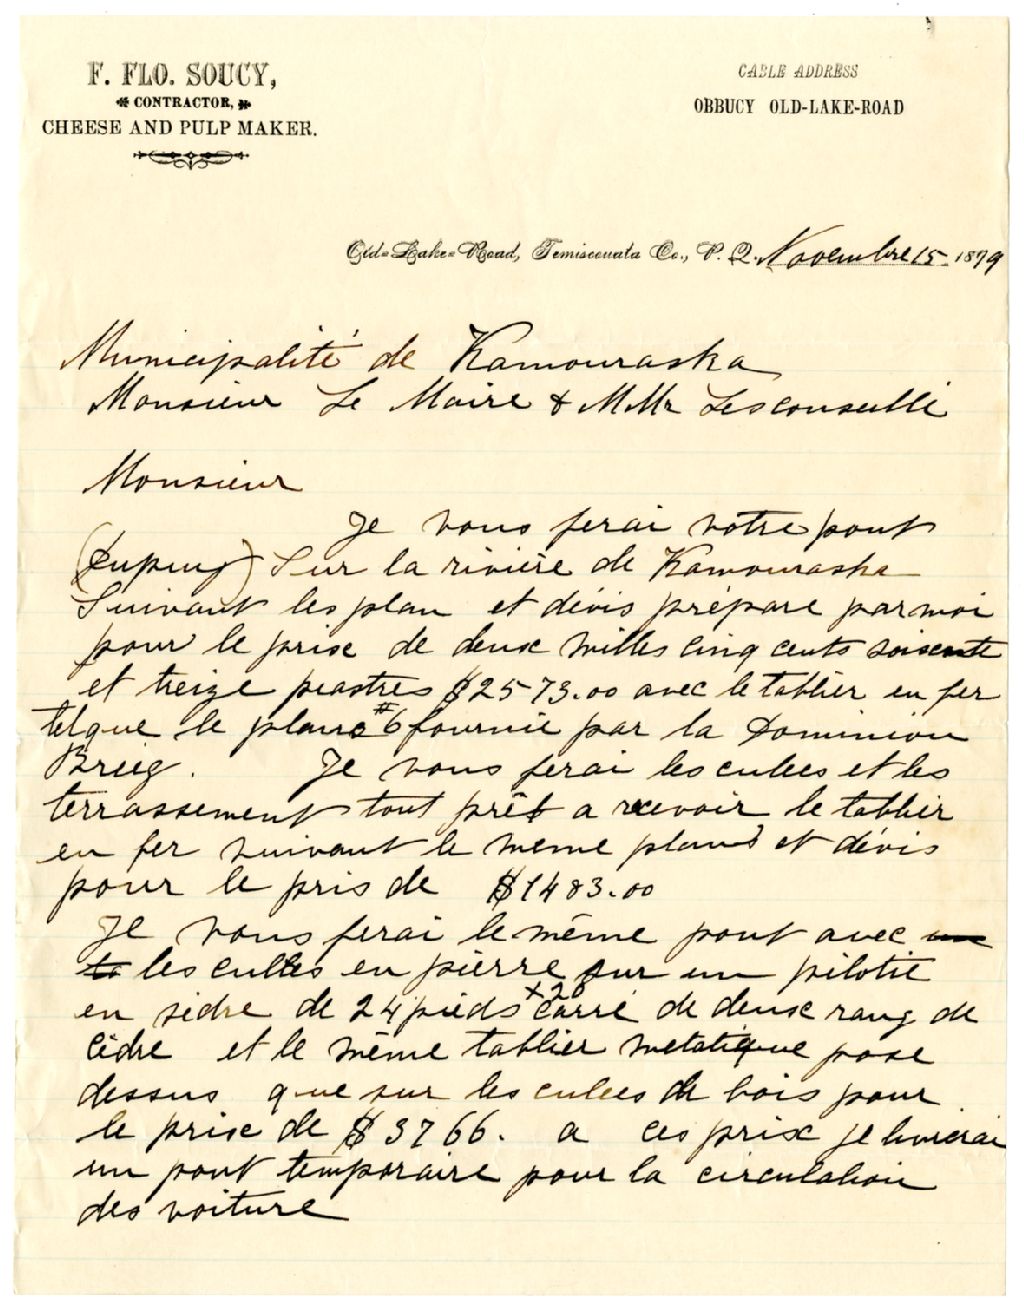 F. FLO. SOUCY,
CONTRACTOR,
CHEESE AND PULP MAKER.
CABLE ADDRESS
OBBUCY OLD-LAKE-ROAD
Old-Lake-Road, Temiscouata Co., P. Q. Novembre 15 1899
Municipalité de Kamouraska
Monsieur Le Maire & MMr Les conseillé
Monsieur
Je vous ferai votre pont
(Dupuy) Sur la rivière de Kamouraska
Suivant les plan et dévis préparé par moi
pour le prix de deux milles cinq cents soisente
et treize piastres $2573.00 avec le tablier en fer
telque le plans #6 fournie par la Dominion
Brieg. Je vous ferai les culees et les
terrassement tout prêt a recevoir le tablier
en fer suivant le meme plans et dévis
pour le pris de $1483.00
Je vous ferai le même pont avec
les culées en pierre sur un pilotie
en sèdre de 24 pieds x 20 carré de deux rang de
cèdre et le même tablier metatique pose
dessus que sur les culees de bois pour
le prix de $3766. a ces prix je livrerai
un pont temporaire pour la circulation
des voiture